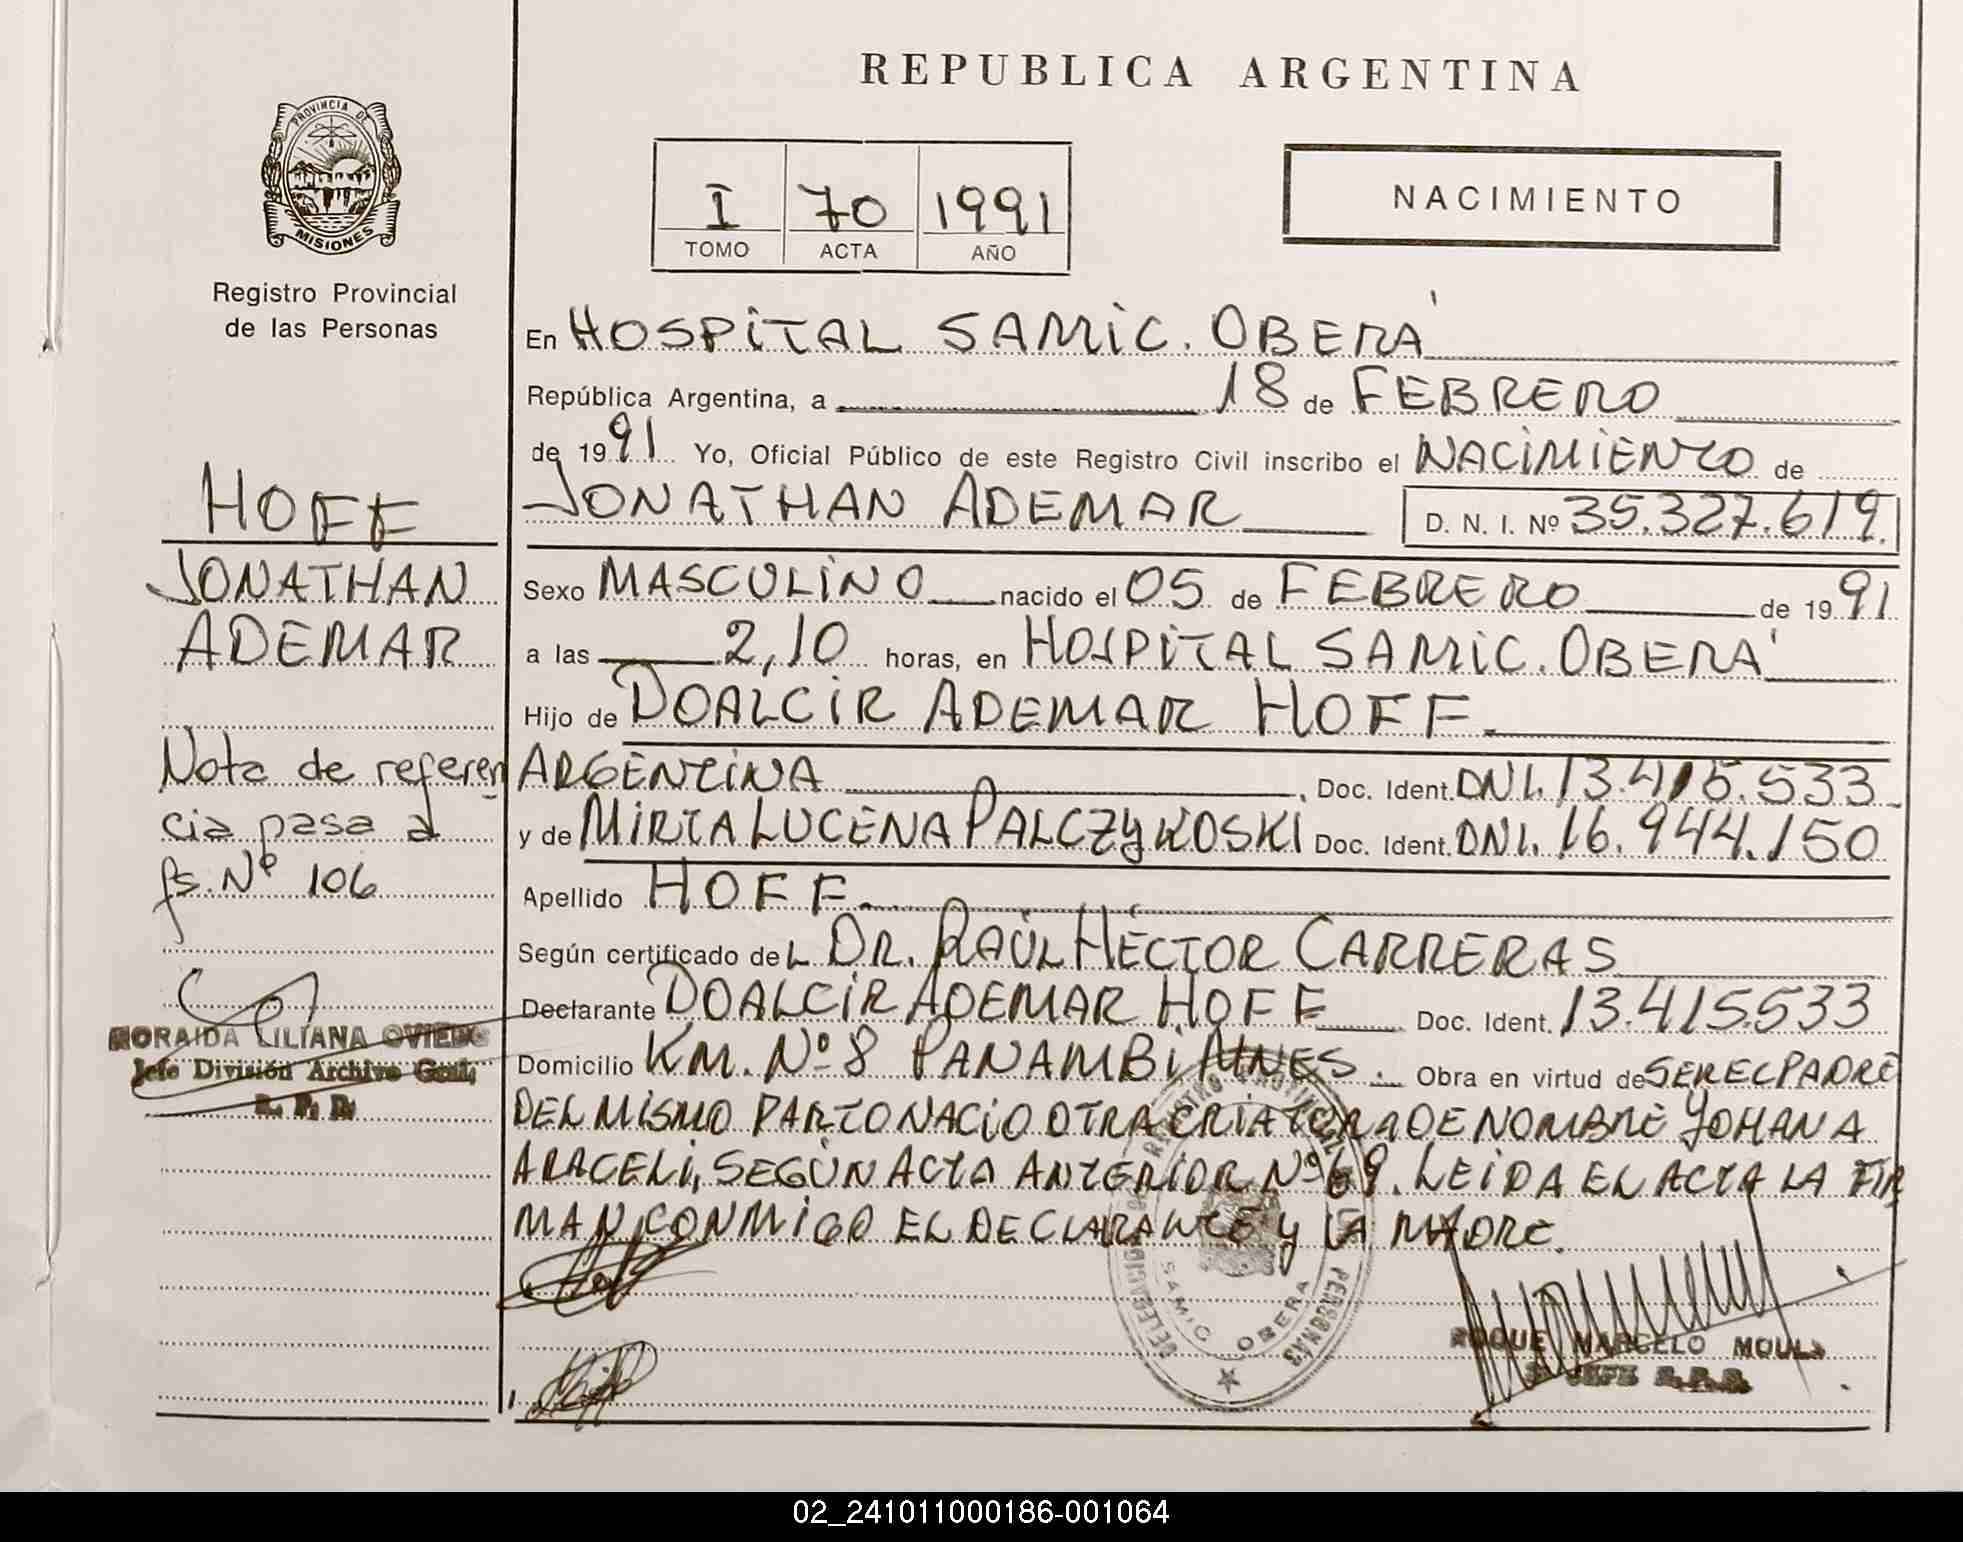 REPUBLICA ARGENTINA
PROVINCIA DE
MISIONES
Registro Provincial
de las Personas
I 70 1991
TOMO ACTA AÑO
NACIMIENTO
En HOSPITAL SAMIC. OBERÁ
República Argentina, a 18 de FEBRERO
de 1991 Yo, Oficial Público de este Registro Civil inscribo el NACIMIENTO de
JONATHAN ADEMAR D. N. I. Nº 35.327.619.
Sexo MASCULINO nacido el 05 de FEBRERO de 1991
a las 2,10 horas, en HOSPITAL SAMIC. OBERÁ
Hijo de DOALCIR ADEMAR HOFF
ARGENTINA Doc. Ident. DNI. 13.415.533
y de MIRTA LUCENA PALCZYKOSKI Doc. Ident. DNI. 16.944.150
Apellido HOFF
Según certificado deL DR. RAÚL HÉCTOR CARRERAS
Declarante DOALCIR ADEMAR HOFF Doc. Ident. 13.415.533
Domicilio KM. Nº 8 PANAMBI MNES. Obra en virtud de SER EL PADRE
DEL MISMO PARTO NACIO OTRA CRIATURA DE NOMBRE YOHANA
ARACELI, SEGÚN ACTA ANTERIOR Nº 69. LEIDA EL ACTA LA FIR
MAN CONMIGO EL DECLARANTE Y LA MADRE.
HOFF
JONATHAN
ADEMAR
Nota de referen
cia pasa a
fs. Nº 106
NORAIDA LILIANA OVIEDO
Jefe División Archivo Gral.
R. P. P.
DELEGACION REGISTRO PROVINCIAL PERSONAS
SAMIC OBERA
ROQUE MARCELO MOULA
JEFE R.P.P.
02_241011000186-001064